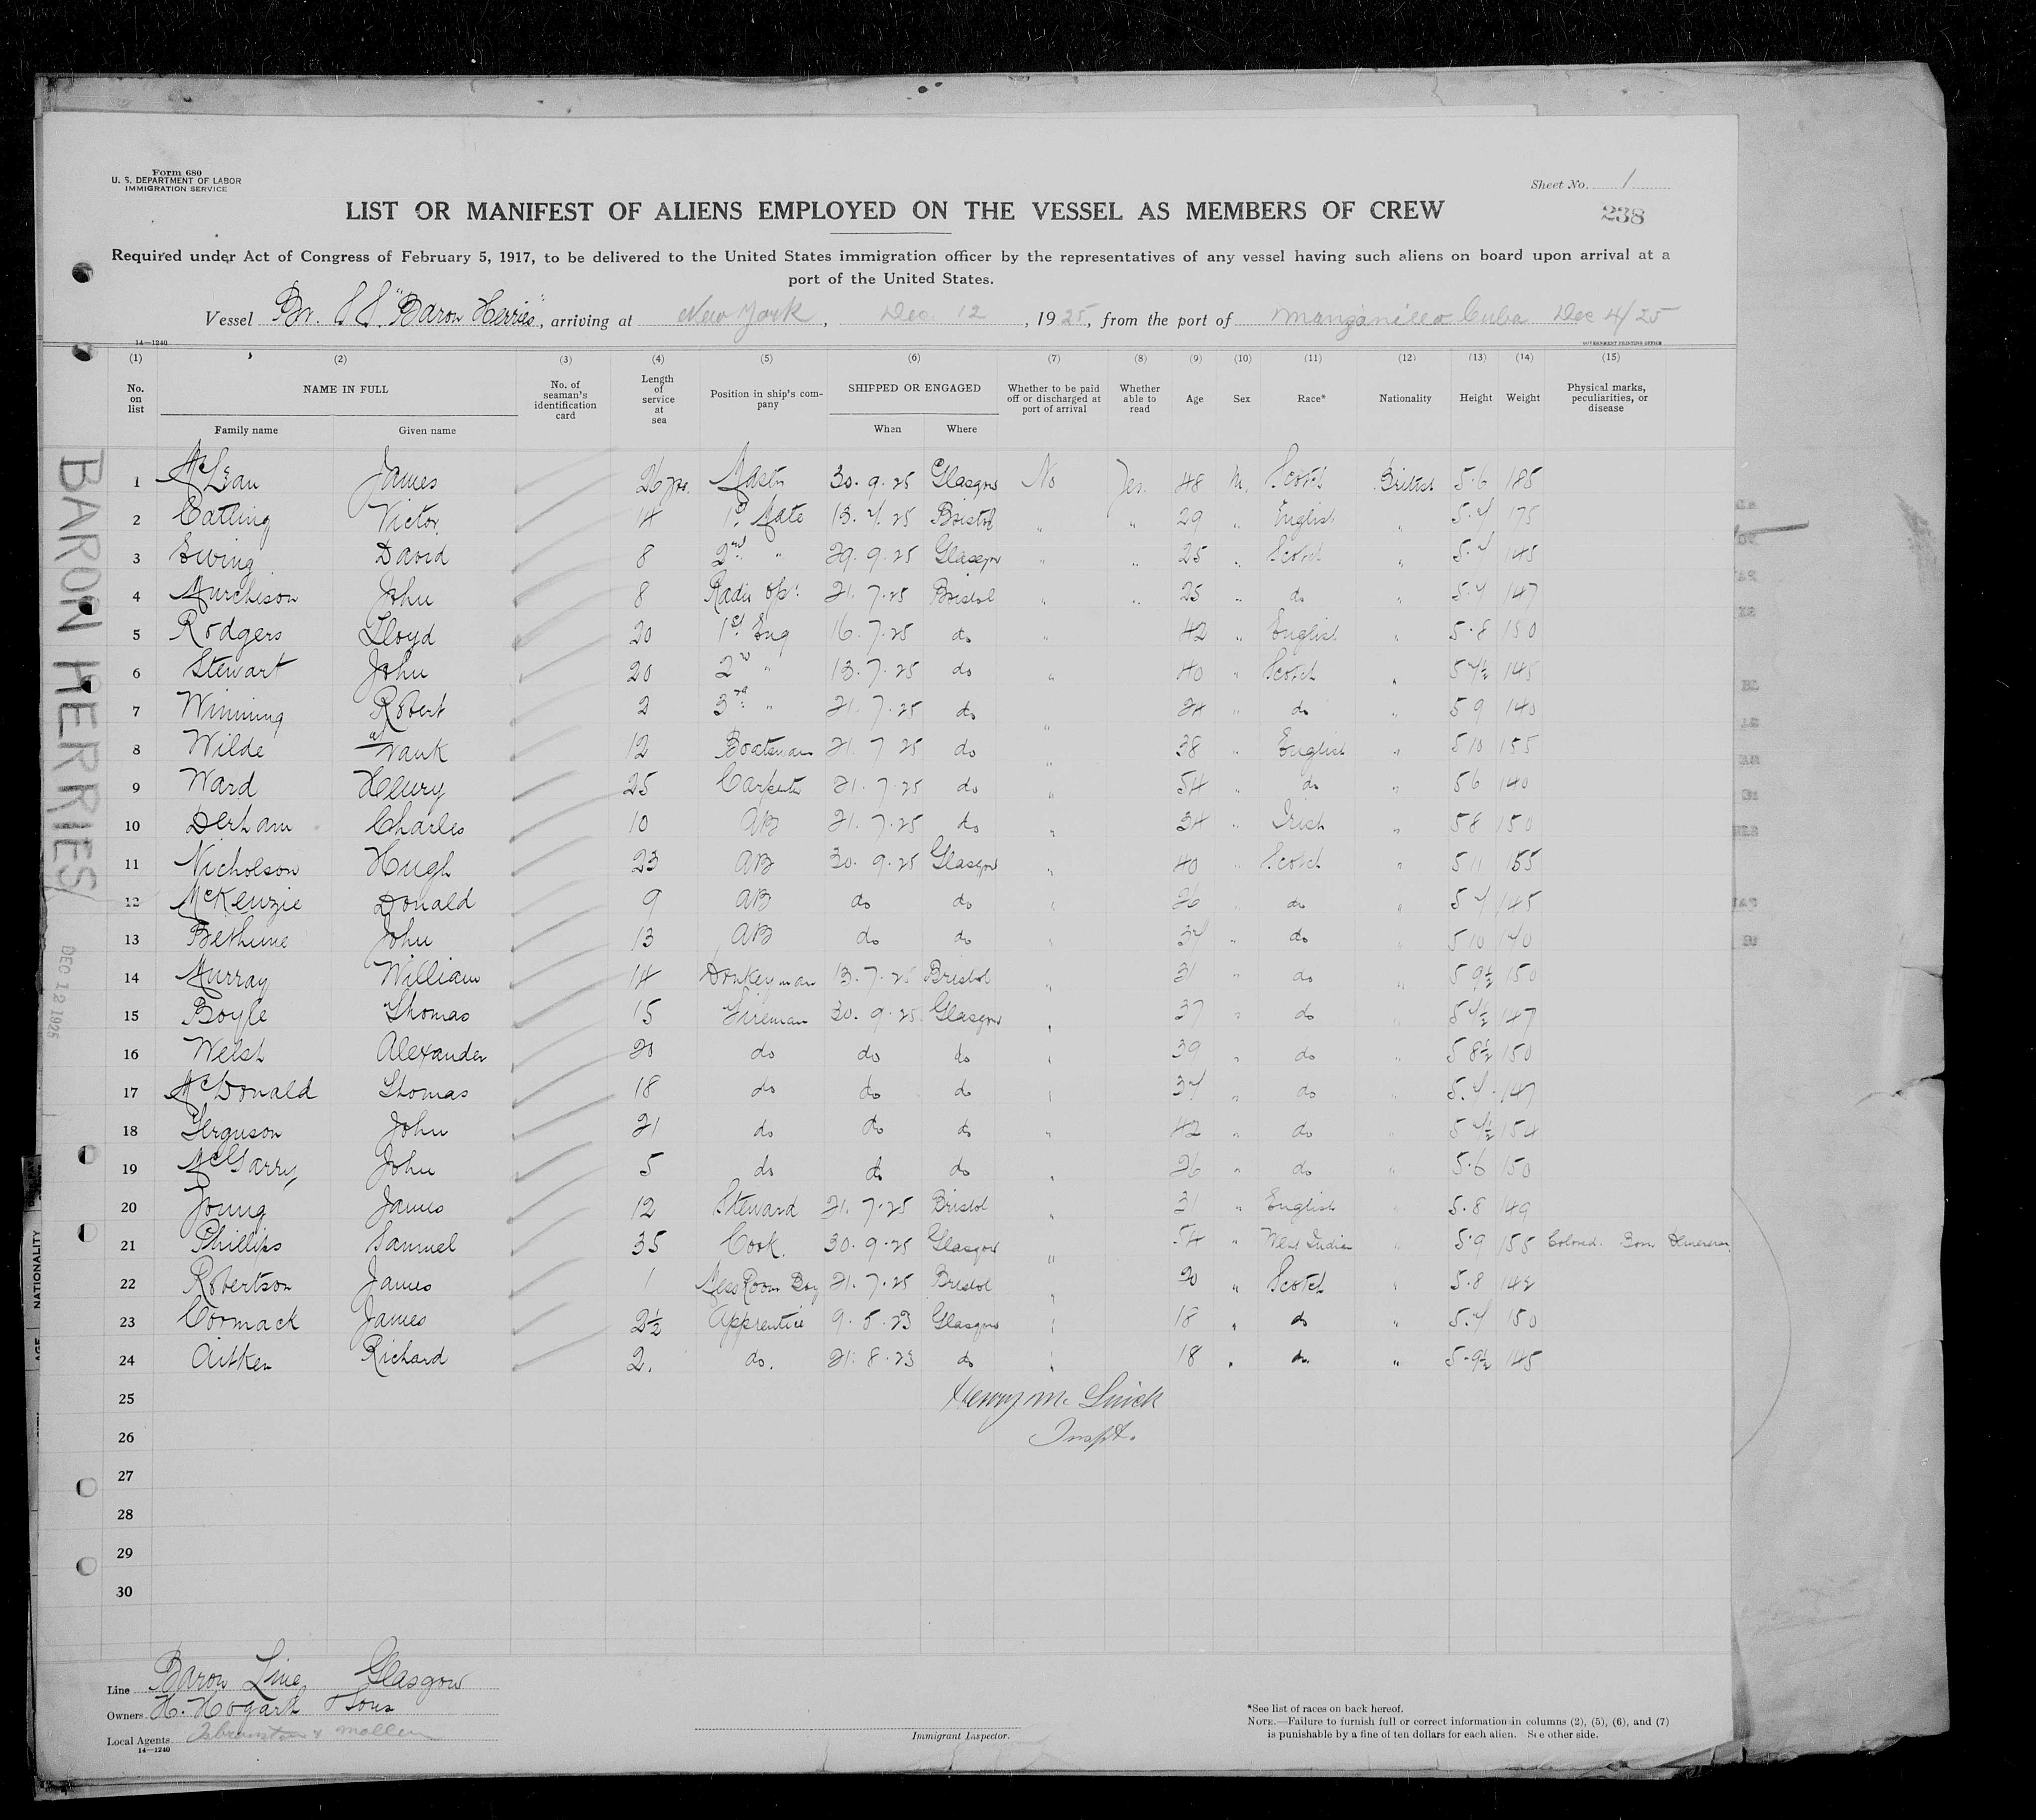 Form 680
U. S. DEPARTMENT OF LABOR
IMMIGRATION SERVICE
Sheet No. 1
238
LIST OR MANIFEST OF ALIENS EMPLOYED ON THE VESSEL AS MEMBERS OF CREW
Required under Act of Congress of February 5, 1917, to be delivered to the United States immigration officer by the representatives of any vessel having such aliens on board upon arrival at a
port of the United States.
Vessel Br. S S. "Baron Herries", arriving at New York, Dec. 12, 1925, from the port of Manzanillo Cuba Dec 4/25
14—1240 GOVERNMENT PRINTING OFFICE
(1) (2) (3) (4) (5) (6) (7) (8) (9) (10) (11) (12) (13) (14) (15)
No. on list NAME IN FULL No. of seaman's identification card Length of service at sea Position in ship's company SHIPPED OR ENGAGED Whether to be paid off or discharged at port of arrival Whether able to read Age Sex Race* Nationality Height Weight Physical marks, peculiarities, or disease
Family name Given name When Where
1 McLean James 26 yrs. Master 30. 9. 25 Glasgow No Yes 48 M. Scotch British 5.6 185
2 Catling Victor 14 1st Mate 13. 7. 25 Bristol " " 29 " English " 5.7 175
3 Ewing David 8 2nd " 29. 9. 25 Glasgow " " 25 " Scotch " 5.7 145
4 Murchison John 8 Radio opr. 21. 7. 25 Bristol " " 25 " do " 5.7 147
5 Rodgers Lloyd 20 1st Eng 16. 7. 25 do " 42 " English " 5.8 180
6 Stewart John 20 2nd " 13. 7. 25 do " 40 " Scotch " 5 7½ 145
7 Winning Robert 2 3rd " 21. 7. 25 do " 24 " do " 5 9 140
8 Wilde Frank 12 Boatsman 21 7 25 do " 38 " English " 5 10 155
9 Ward Henry 25 Carpenter 21. 7. 25 do " 54 " do " 5 6 140
10 Derham Charles 10 AB 21. 7. 25 do " 34 " Irish " 5 8 150
11 Nicholson Hugh 23 AB 30. 9. 25 Glasgow " 40 " Scotch " 5 11 155
12 McKenzie Donald 9 AB do do " 26 " do " 5 7 145
13 Bethune John 13 AB do do " 37 " do " 5 10 140
14 Murray William 14 Donkeyman 13. 7. 25 Bristol " 31 " do " 5 9½ 150
15 Boyle Thomas 15 Fireman 30. 9. 25 Glasgow " 37 " do " 5 7½ 147
16 Welsh Alexander 20 do do do " 39 " do " 5 8½ 150
17 McDonald Thomas 18 do do do " 37 " do " 5.7 147
18 Ferguson John 21 do do do " 42 " do " 5 7½ 154
19 McGarry John 5 do do do " 26 " do " 5.6 150
20 Young James 12 Steward 21. 7. 25 Bristol " 31 " English " 5.8 149
21 Phillips Samuel 35 Cook. 30. 9. 25 Glasgow " 54 " West Indian " 5.9 155 Colored. Born Demerara
22 Robertson James 1 Mess Room Boy 21. 7. 25 Bristol " 20 " Scotch " 5.8 142
23 Cormack James 2½ Apprentice 9. 5. 23 Glasgow " 18 " do " 5.7 150
24 Aitken Richard 2. do. 21. 8. 23 do " 18 " do. " 5.9½ 145
25 Henry M.
26 Inspt.
27
28
29
30
BARON HERRIES
DEC 12 1925
NATIONALITY
AGE
Line Baron Line, Glasgow
Owners H. Hogarth & Sons
Local Agents
14—1240
Immigrant Inspector.
*See list of races on back hereof.
NOTE.—Failure to furnish full or correct information in columns (2), (5), (6), and (7)
is punishable by a fine of ten dollars for each alien. See other side.